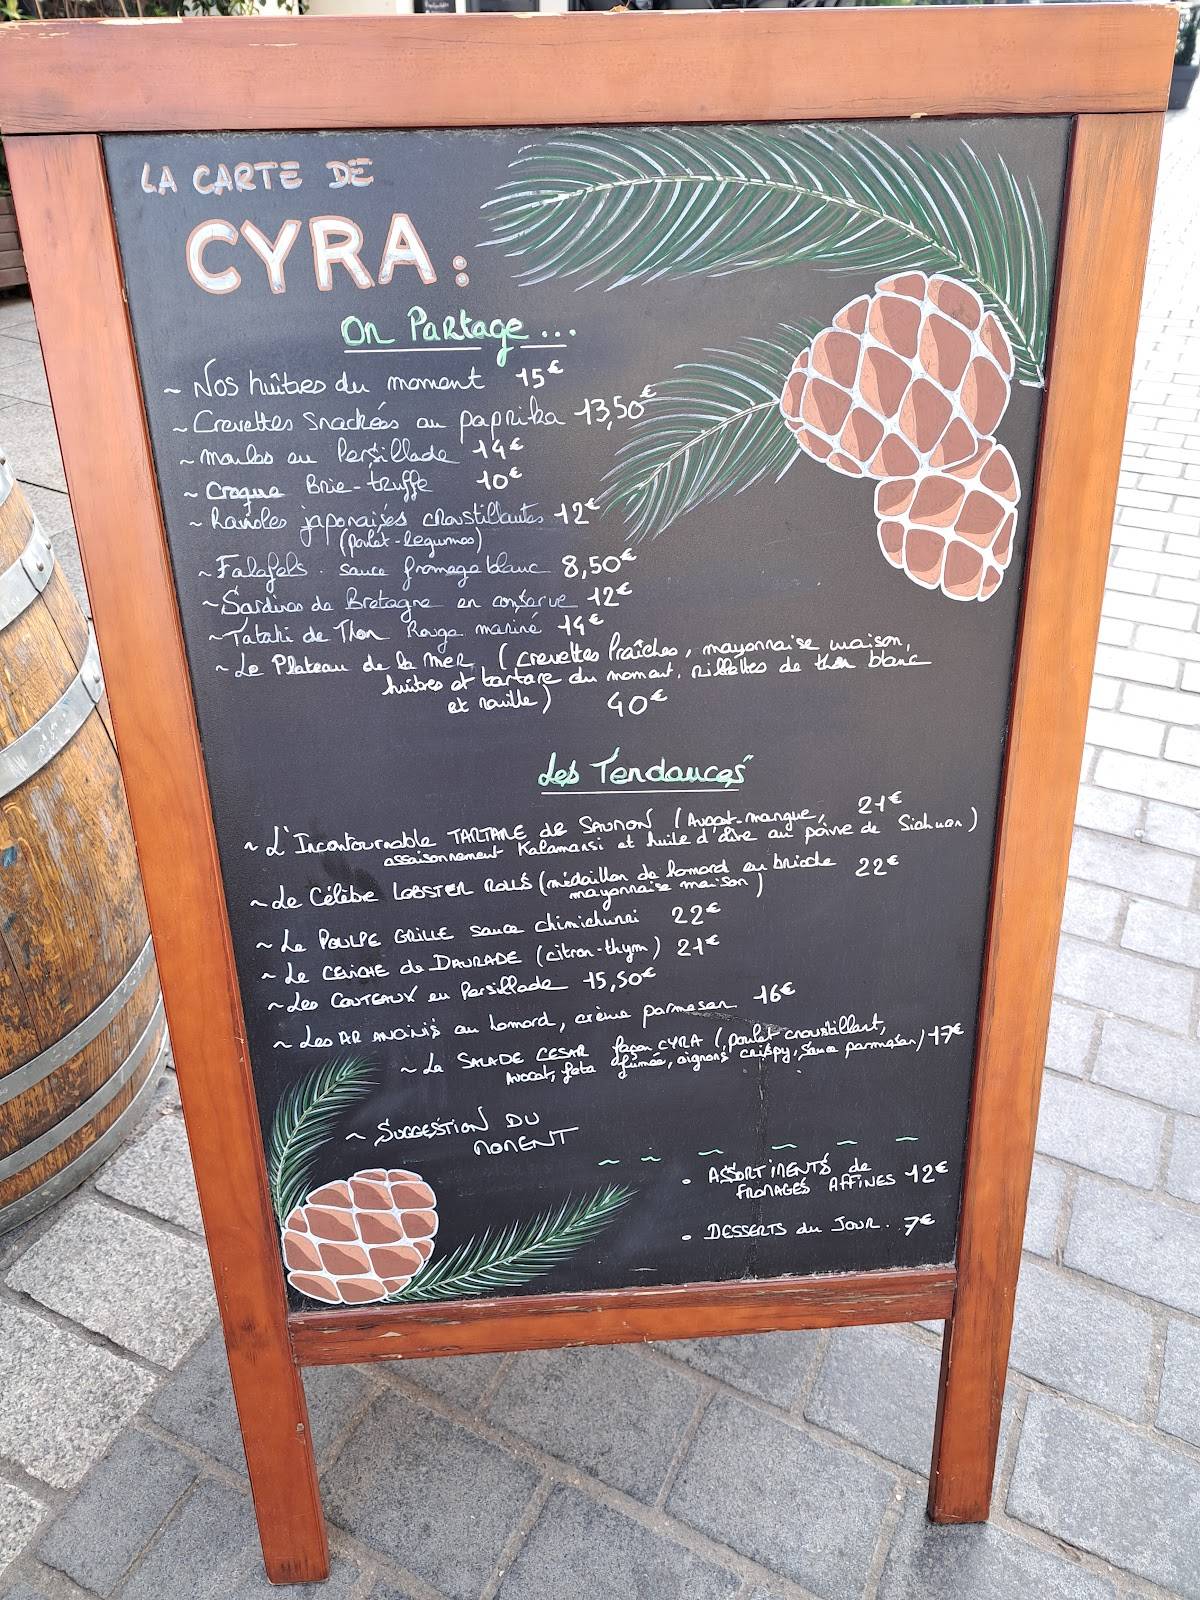 LA CARTE DE
CYRA :
On Partage...
~ Nos huîtres du moment 15€
~ Crevettes snackées au paprika 13,50€
~ Moules en Persillade 14€
~ Croque Brie-truffe 10€
~ Ravioles japonaises croustillantes 12€
(poulet-légumes)
~ Falafels. sauce fromage blanc 8,50€
~ Sardines de Bretagne en conserve 12€
~ Tataki de Thon Rouge mariné 14€
~ Le Plateau de la Mer (crevettes fraîches, mayonnaise maison,
huîtres et tartare du moment, rillettes de thon blanc
et rouille) 40€
Les Tendances
~ L'Incontournable TARTARE de SAUMON (Avocat-mangue, 21€
assaisonnement Kalamansi et huile d'olive au poivre de Sichuan)
~ Le Célèbre LOBSTER ROLLS (médaillon de homard en brioche 22€
mayonnaise maison)
~ Le POULPE GRILLE sauce chimichurri 22€
~ Le CEVICHE de DAURADE (citron-thym) 21€
~ Les COUTEAUX en Persillade 15,50€
~ Les au homard, crème parmesan 16€
~ La SALADE CESAR façon CYRA (poulet croustillant,
Avocat, feta fumée, oignons crispy, sauce parmesan) 17€
~ SUGGESTION DU
MOMENT
• ASSORTIMENTS de
FROMAGES AFFINES 12€
• DESSERTS du JOUR. 7€